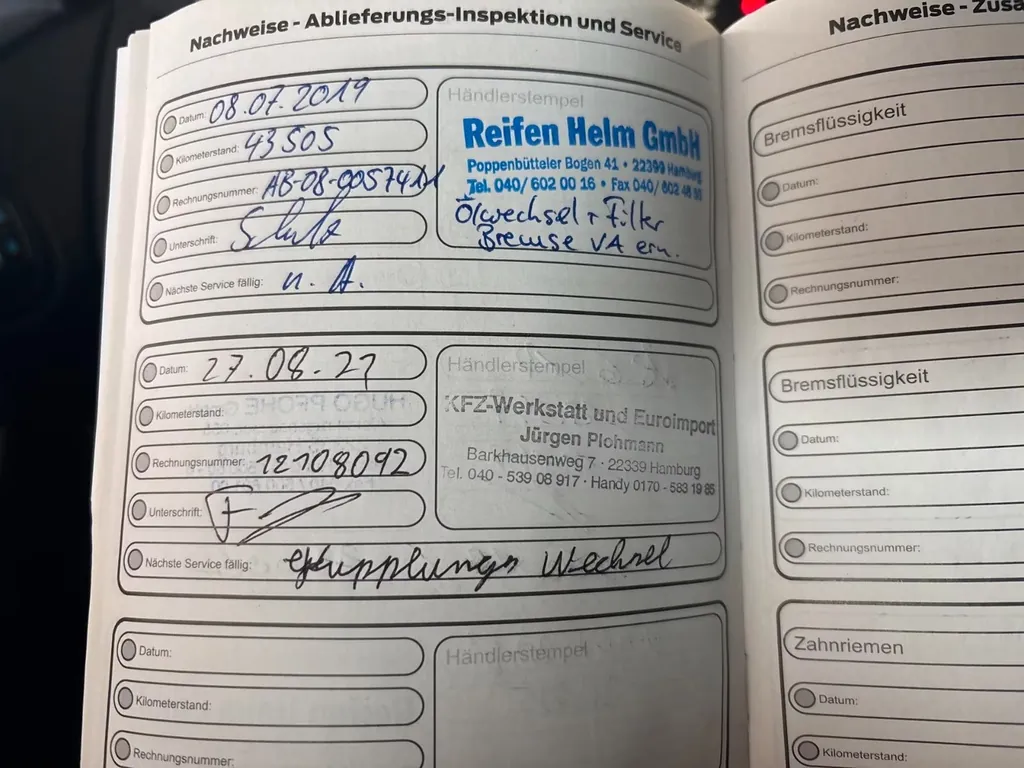 Nachweise - Ablieferungs-Inspektion und Service
Datum: 08.07.2019
Kilometerstand: 43505
Rechnungsnummer: AB-08-005741
Unterschrift:
Nächste Service fällig: n. A.
Händlerstempel
Reifen Helm GmbH
Poppenbütteler Bogen 41 • 22399 Hamburg
Tel. 040/ 602 00 16 • Fax 040/ 602 48
Ölwechsel + Filter
Bremse VA ern.
Datum: 27.08.21
Kilometerstand:
Rechnungsnummer: 12108092
Unterschrift:
Nächste Service fällig: Kupplungs Wechsel
Händlerstempel
KFZ-Werkstatt und Euroimport
Jürgen Plohmann
Barkhausenweg 7 · 22339 Hamburg
Tel. 040 - 539 08 917 · Handy 0170 - 583 19 85
Datum:
Kilometerstand:
Rechnungsnummer:
Händlerstempel
Nachweise - Zusa
Bremsflüssigkeit
Datum:
Kilometerstand:
Rechnungsnummer:
Bremsflüssigkeit
Datum:
Kilometerstand:
Rechnungsnummer:
Zahnriemen
Datum:
Kilometerstand: